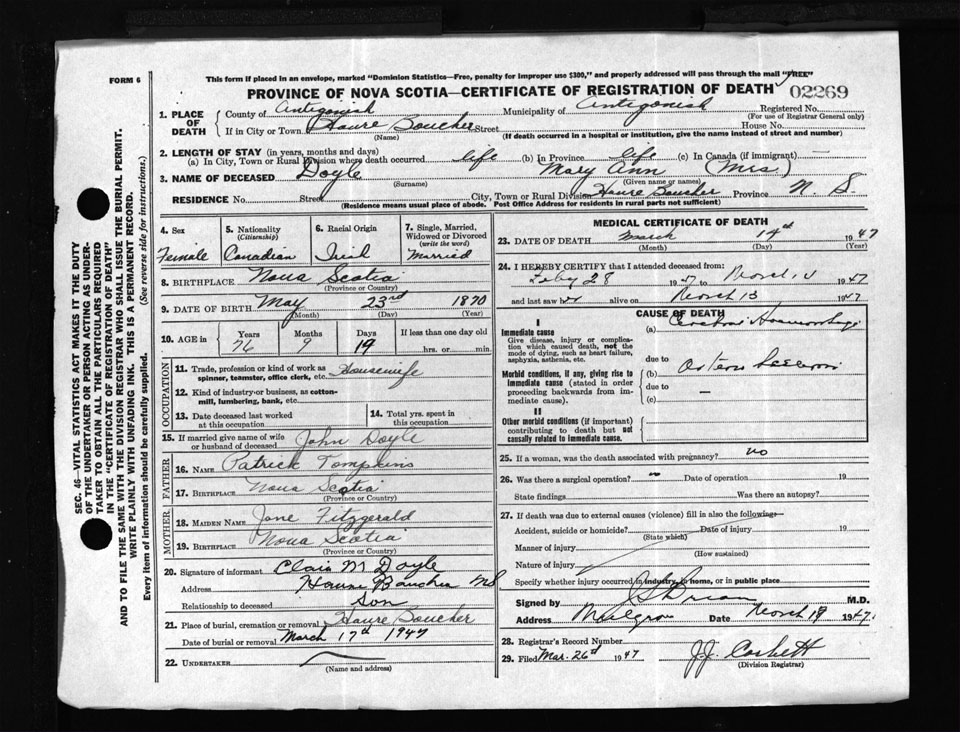 FORM 6
This form if placed in an envelope, marked "Dominion Statistics—Free, penalty for improper use $300," and properly addressed will pass through the mail "FREE"
PROVINCE OF NOVA SCOTIA—CERTIFICATE OF REGISTRATION OF DEATH 02269
1. PLACE OF DEATH County of Antigonish Municipality of Antigonish Registered No.
(For use of Registrar General only)
If in City or Town Havre Boucher Street House No.
(Name) (If death occurred in a hospital or institution, give the name instead of street and number)
2. LENGTH OF STAY (in years, months and days)
(a) In City, Town or Rural Division where death occurred life (b) In Province life (c) In Canada (if immigrant) —
3. NAME OF DECEASED Doyle Mary Ann (Mrs)
(Surname) (Given name or names)
RESIDENCE No. Street City, Town or Rural Division Havre Boucher Province N. S.
(Residence means usual place of abode. Post Office Address for residents in rural parts not sufficient)
4. Sex 5. Nationality (Citizenship) 6. Racial Origin 7. Single, Married, Widowed or Divorced (write the word)
Female Canadian Married
8. BIRTHPLACE Nova Scotia
(Province or Country)
9. DATE OF BIRTH May 23rd 1870
(Month) (Day) (Year)
10. AGE in Years Months Days If less than one day old
76 9 19 hrs. or min.
OCCUPATION
11. Trade, profession or kind of work as spinner, teamster, office clerk, etc. Housewife
12. Kind of industry or business, as cotton-mill, lumbering, bank, etc.
13. Date deceased last worked at this occupation
14. Total yrs. spent in this occupation
15. If married give name of wife or husband of deceased John Doyle
FATHER
16. NAME Patrick Tompkins
17. BIRTHPLACE Nova Scotia
(Province or Country)
MOTHER
18. MAIDEN NAME Jane Fitzgerald
19. BIRTHPLACE Nova Scotia
(Province or Country)
20. Signature of informant M Doyle
Address Havre Boucher NS
Relationship to deceased Son
21. Place of burial, cremation or removal Havre Boucher
Date of burial or removal March 17th 1947
22. UNDERTAKER
(Name and address)
MEDICAL CERTIFICATE OF DEATH
23. DATE OF DEATH March 14th 1947
(Month) (Day) (Year)
24. I HEREBY CERTIFY that I attended deceased from:
28 1947 to 1947
and last saw alive on March 13 1947
CAUSE OF DEATH
I
Immediate cause
Give disease, injury or complication which caused death, not the mode of dying, such as heart failure, asphyxia, asthenia, etc.
(a) Cerebral Haemorrhage
due to
Morbid conditions, if any, giving rise to immediate cause (stated in order proceeding backwards from immediate cause).
(b)
due to —
(c)
II
Other morbid conditions (if important) contributing to death but not causally related to immediate cause.
25. If a woman, was the death associated with pregnancy? no
26. Was there a surgical operation? Date of operation 19
State findings Was there an autopsy?
27. If death was due to external causes (violence) fill in also the following—
Accident, suicide or homicide? Date of injury 19
(State which)
Manner of injury
(How sustained)
Nature of injury
Specify whether injury occurred in industry, in home, or in public place
Signed by M.D.
Address Mulgrave Date March 19 1947.
28. Registrar's Record Number
29. Filed Mar. 26th 1947 J.J. Corbett
(Division Registrar)
SEC. 46—VITAL STATISTICS ACT MAKES IT THE DUTY
OF THE UNDERTAKER OR PERSON ACTING AS UNDERTAKER TO OBTAIN ALL THE PARTICULARS REQUIRED
IN THE "CERTIFICATE OF REGISTRATION OF DEATH"
AND TO FILE THE SAME WITH THE DIVISION REGISTRAR WHO SHALL ISSUE THE BURIAL PERMIT.
WRITE PLAINLY WITH UNFADING INK. THIS IS A PERMANENT RECORD.
Every item of information should be carefully supplied. (See reverse side for instructions.)